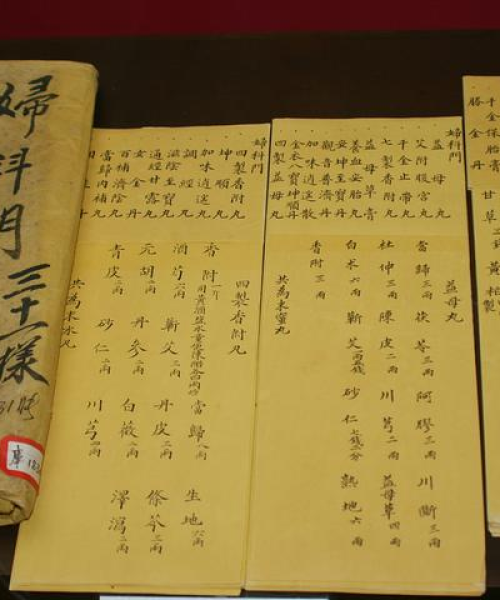 婦科門三十一樣
31時
庫
婦科門
四製香附丸
坤順丸
加味逍遙丸
調經丸
滋陰至寶丸
通經甘露丸
女金丹
百補濟陰丸
當歸內補丸
四製香附丸
香附一斤
當歸八兩
生地六兩
酒芍六兩 蘄艾二兩 丹皮二兩 條芩三兩
元胡二兩 丹參二兩 白薇二兩 澤瀉二兩
青皮二兩 砂仁二兩 川芎四兩
共為末水丸
婦科門
艾附暖宮丸
千金止帶丸
七製香附丸
益母草膏
養血安胎丸
安坤至寶丹
觀音普濟丹
加味逍遙散
金衣八寶坤順丹
四製益母丸
益母丸
當歸三兩 茯苓三兩 阿膠三兩 川斷三兩
杜仲三兩 陳皮二兩 川芎二兩 益母草四兩
白朮六兩 蘄艾一兩五錢 砂仁七錢二分 熟地六兩
香附三兩
共為末蜜丸
千金保胎膏
勝金丹
甘草
黃柏